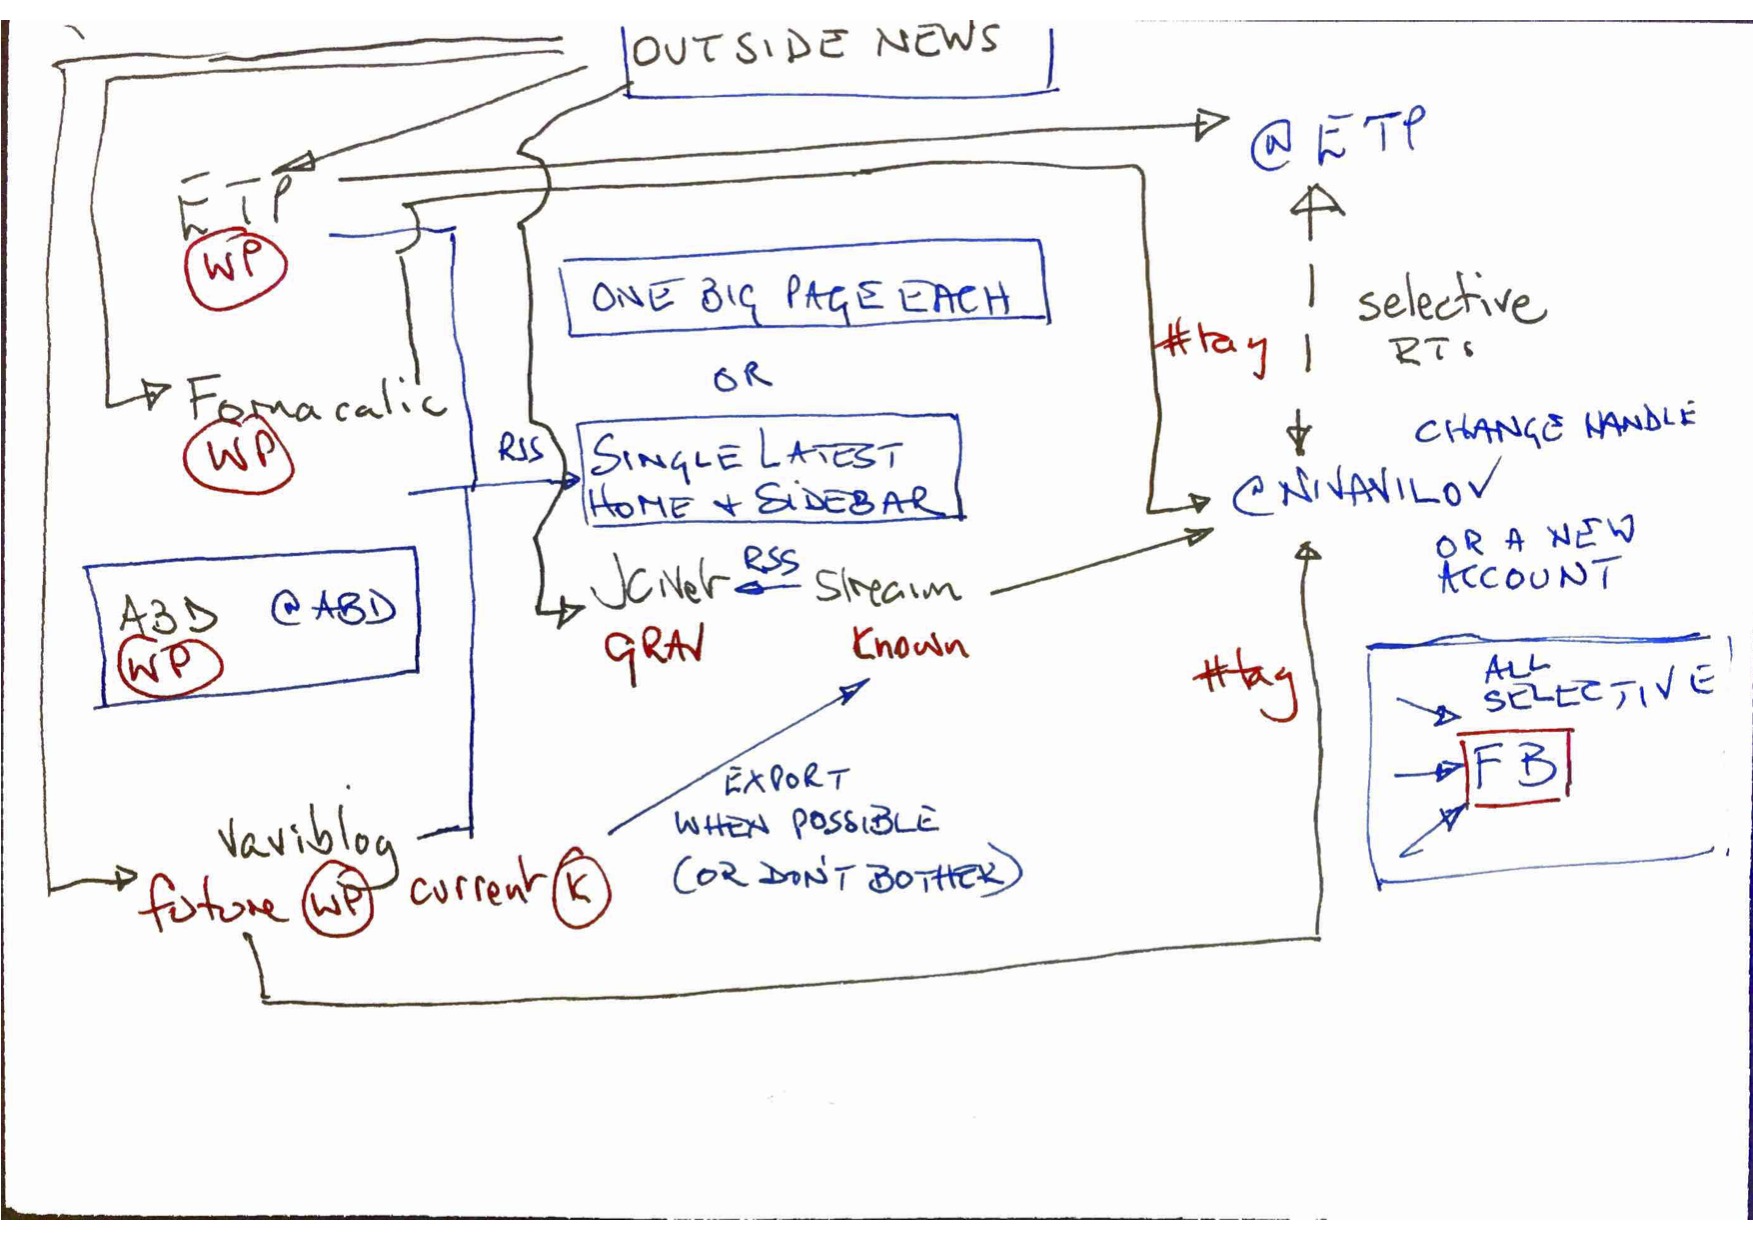 OUTSIDE NEWS
@ETP
ETP
WP
ONE BIG PAGE EACH
selective
RTs
#tag
OR
Fornacalic
WP
CHANGE HANDLE
RSS
SINGLE LATEST
HOME + SIDEBAR
@NIVAVILOV
OR A NEW
ACCOUNT
ABD @ABD
WP
JCNet RSS Stream
GRAV Known
#tag
ALL
SELECTIVE
FB
EXPORT
WHEN POSSIBLE
(OR DON'T BOTHER)
vaviblog
future WP current K